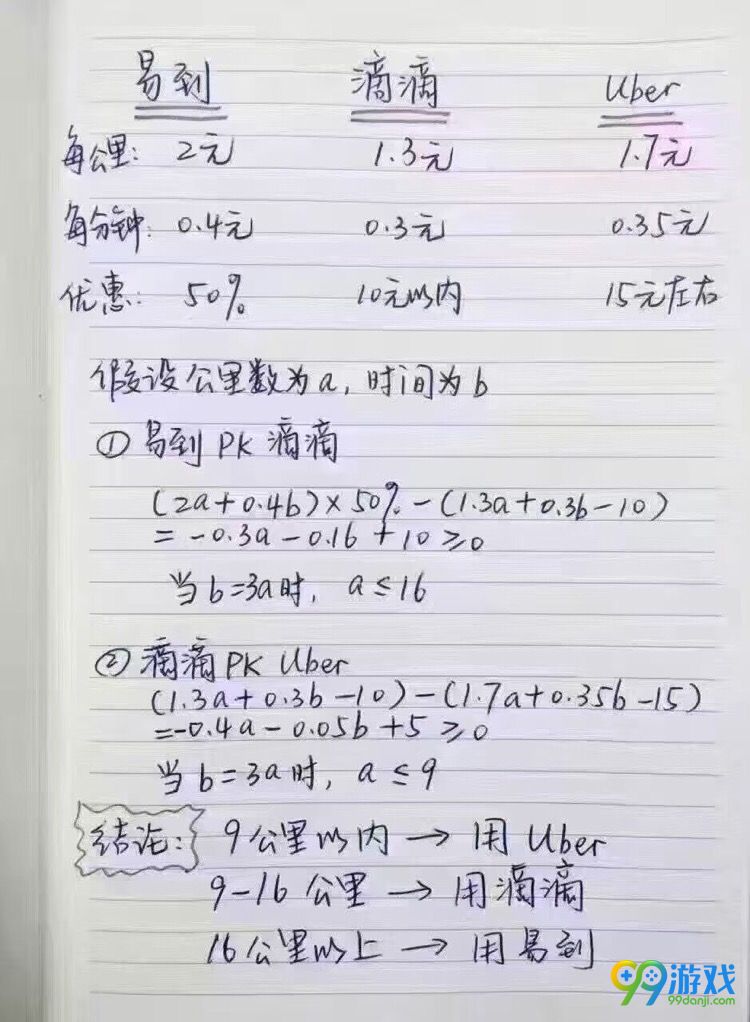 易到 滴滴 Uber
每公里: 2元 1.3元 1.7元
每分钟: 0.4元 0.3元 0.35元
优惠: 50% 10元以内 15元左右
假设公里数为a, 时间为b
① 易到 PK 滴滴
(2a+0.4b)×50%-(1.3a+0.3b-10)
=-0.3a-0.1b+10≥0
当b=3a时, a≤16
② 滴滴 PK Uber
(1.3a+0.3b-10)-(1.7a+0.35b-15)
=-0.4a-0.05b+5≥0
当b=3a时, a≤9
结论: 9公里以内→用Uber
9-16公里→用滴滴
16公里以上→用易到
99游戏
99danji.com